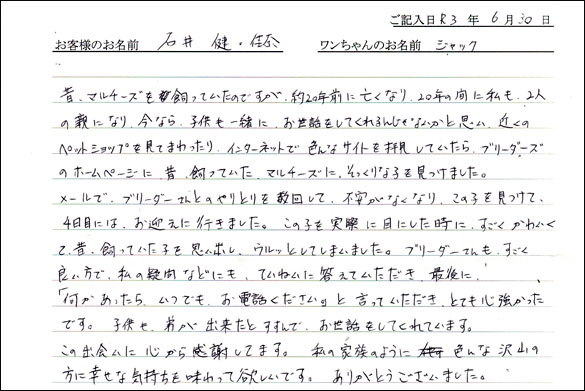 ご記入日 R3 年 6 月 30 日
お客様のお名前 石井 健・佳奈 ワンちゃんのお名前 ジャック
昔、マルチーズを飼っていたのですが、約20年前に亡くなり、20年の間に私も、2人
の親になり、今なら、子供も一緒に、お世話をしてくれるんじゃないかと思い、近くの
ペットショップを見てまわったり、インターネットで色んなサイトを拝見していたら、ブリーダーズ
のホームページに昔、飼っていた、マルチーズに、そっくりな子を見つけました。
メールで、ブリーダーさんとのやりとりを数回して、不安がなくなり、この子を見つけて、
4日目には、お迎えに行きました。この子を実際に目にした時に、すごくかわいく
て、昔、飼っていた子を思い出し、ウルッとしてしまいました。ブリーダーさんも、すごく
良い方で、私の疑問などにも、ていねいに答えていただき、最後に、
「何かあったら、いつでも、お電話ください。」と言っていただき、とても心強かった
です。子供も、弟が出来たとよろこんで、お世話をしてくれています。
この出会いに心から感謝してます。私の家族のように色んな沢山の
方に幸せな気持ちを味わって欲しいです。ありがとうございました。